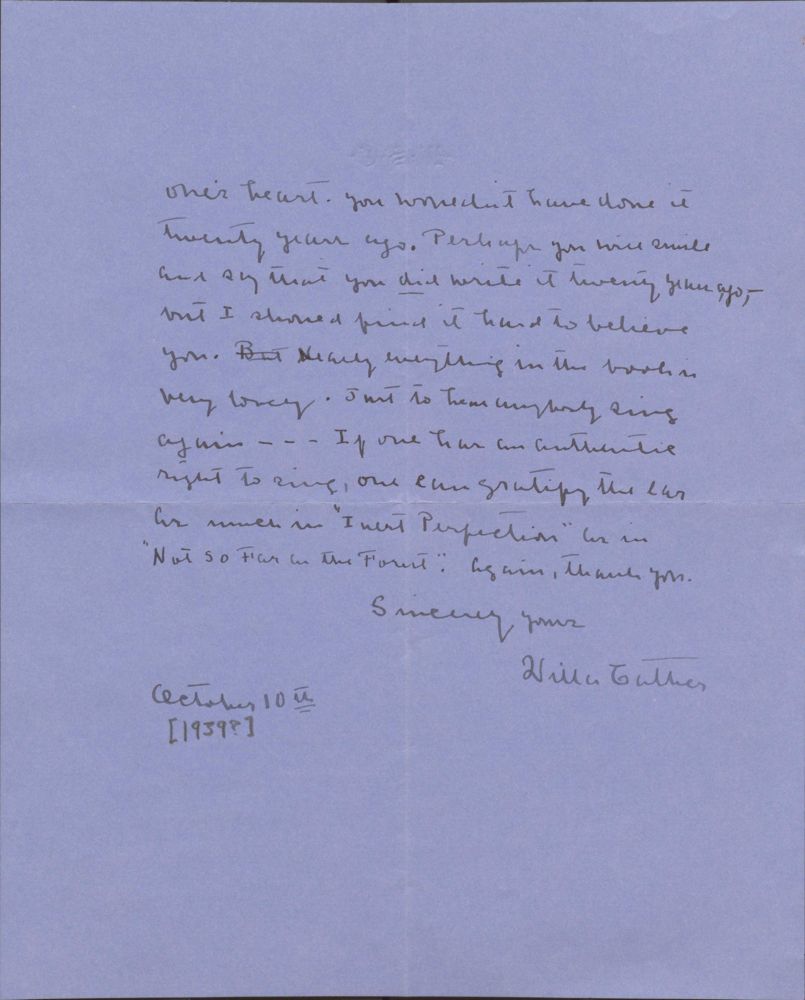 one's heart. You wouldn't have done it
twenty years ago. Perhaps you will smile
and say that you did write it twenty years ago,—
but I should find it hard to believe
you. But Nearly everything in the book is
very lovely. Just to hear anybody sing
again - - - If one has an authentic
right to sing, one can gratify the ear
as much in "Inert Perfection" as in
"Not so Far as the Forest". Again, thank you.
Sincerely yours
Willa Cather
October 10th
[1939?]